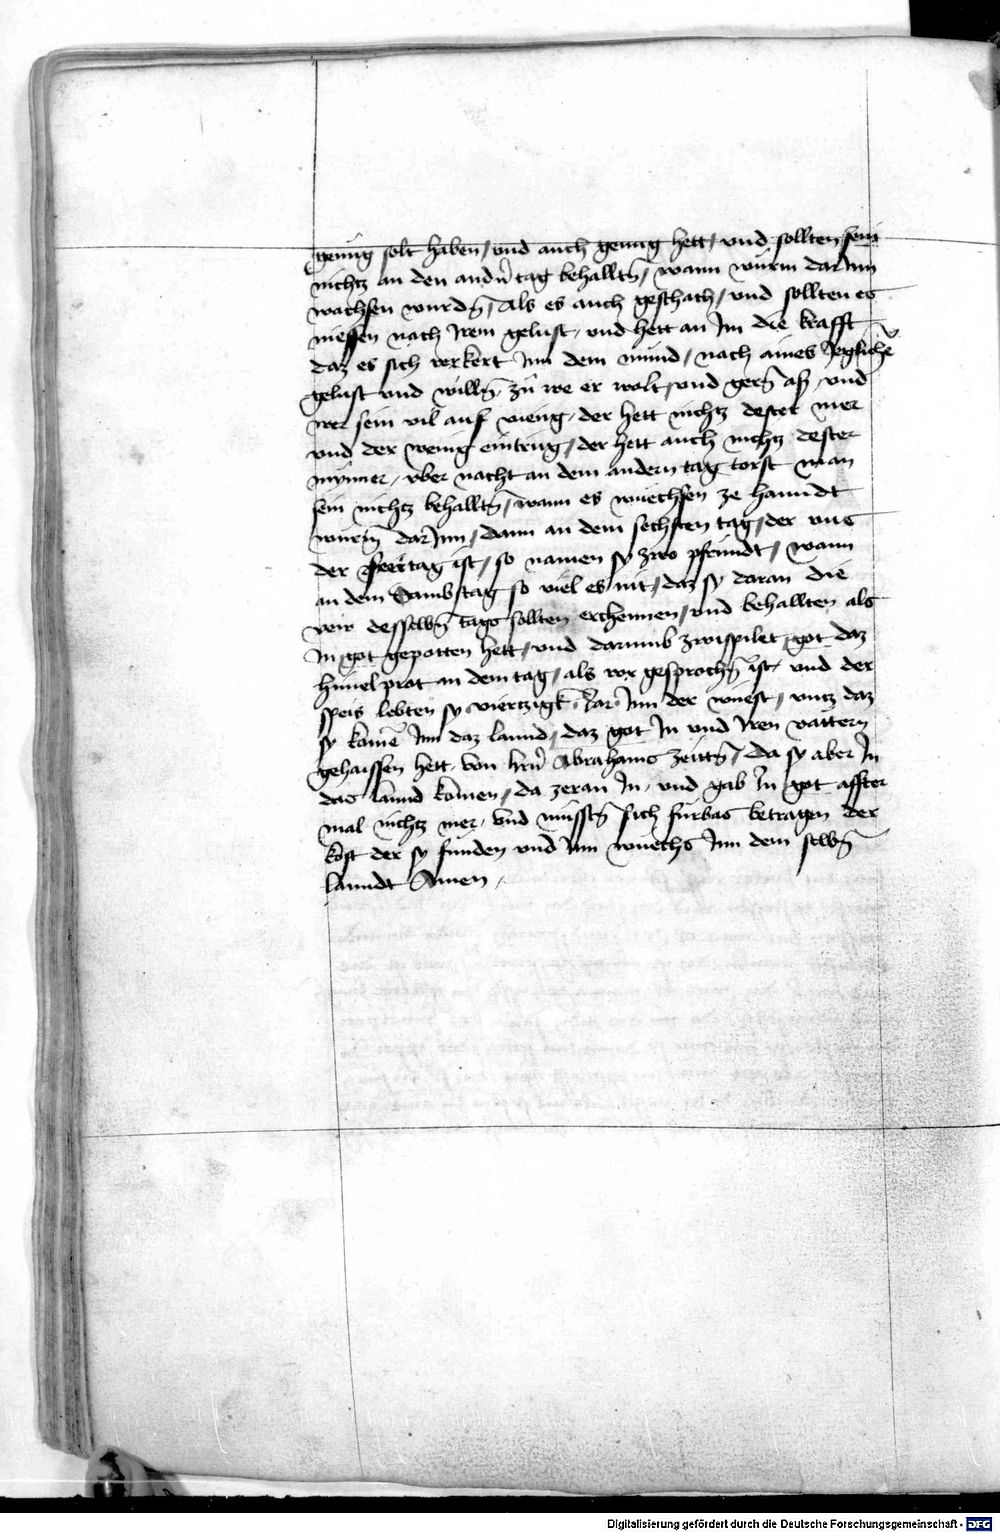 genüg solt haben / vnd auch genug hett / vnd sollten sein
nichtz an den andn̄ tag behalltn̄ / wann würm darJnn
wachsen wurdn̄ / Als es auch geschach / vnd sollten es
niessen nach Jrem gelust / vnd hett an Jm die krafft
daz es sich verkert Jnn dem mund / nach aines Jegliche̅
gelust vnd willn̄ / zů we er wolt / vnd gern̄ aß / vnd
wer sein vil auf vieng / der hett nichtz dester mer
vnd der wenig eintrug / der hett auch nichtz dester
mynner / vber nacht an dem andern tag torst man
sein nichtz behalltn̄ / wann es wuechsen ze hanndt
würm̄ darJnn / dann an dem sechsten tag / der vns
der freitag ist / so namen sy zwo pfründt / wann
an dem Sambstag so viel es nit / daz sy daran die
veir desselbn̄ tags sollten erchennen / vnd behallten als
Jn got gepotten hett / vnd darumb zwispilet got daz
himel prot an dem tag / als vor gesprochn̄ ist / vnd der
speis lebten sy viertzigk Jar Jnn der wuest / vntz daz
sy kome̅ Jnn daz lannd / daz got Jn vnd Jren vattern
gehaissen hett / von hrn̄ Abrahams zeittn̄ / da sy aber Jn
das lannd komen / da zeran Jn / vnd gab Jn got affter
mal nichtz mer / vnd müsstn̄ sich fürbas betragen der
kost der sy funden vnd Jnn wuechs Jnn dem selbn̄
lanndt Amen /
Digitalisierung gefördert durch die Deutsche Forschungsgemeinschaft - DFG